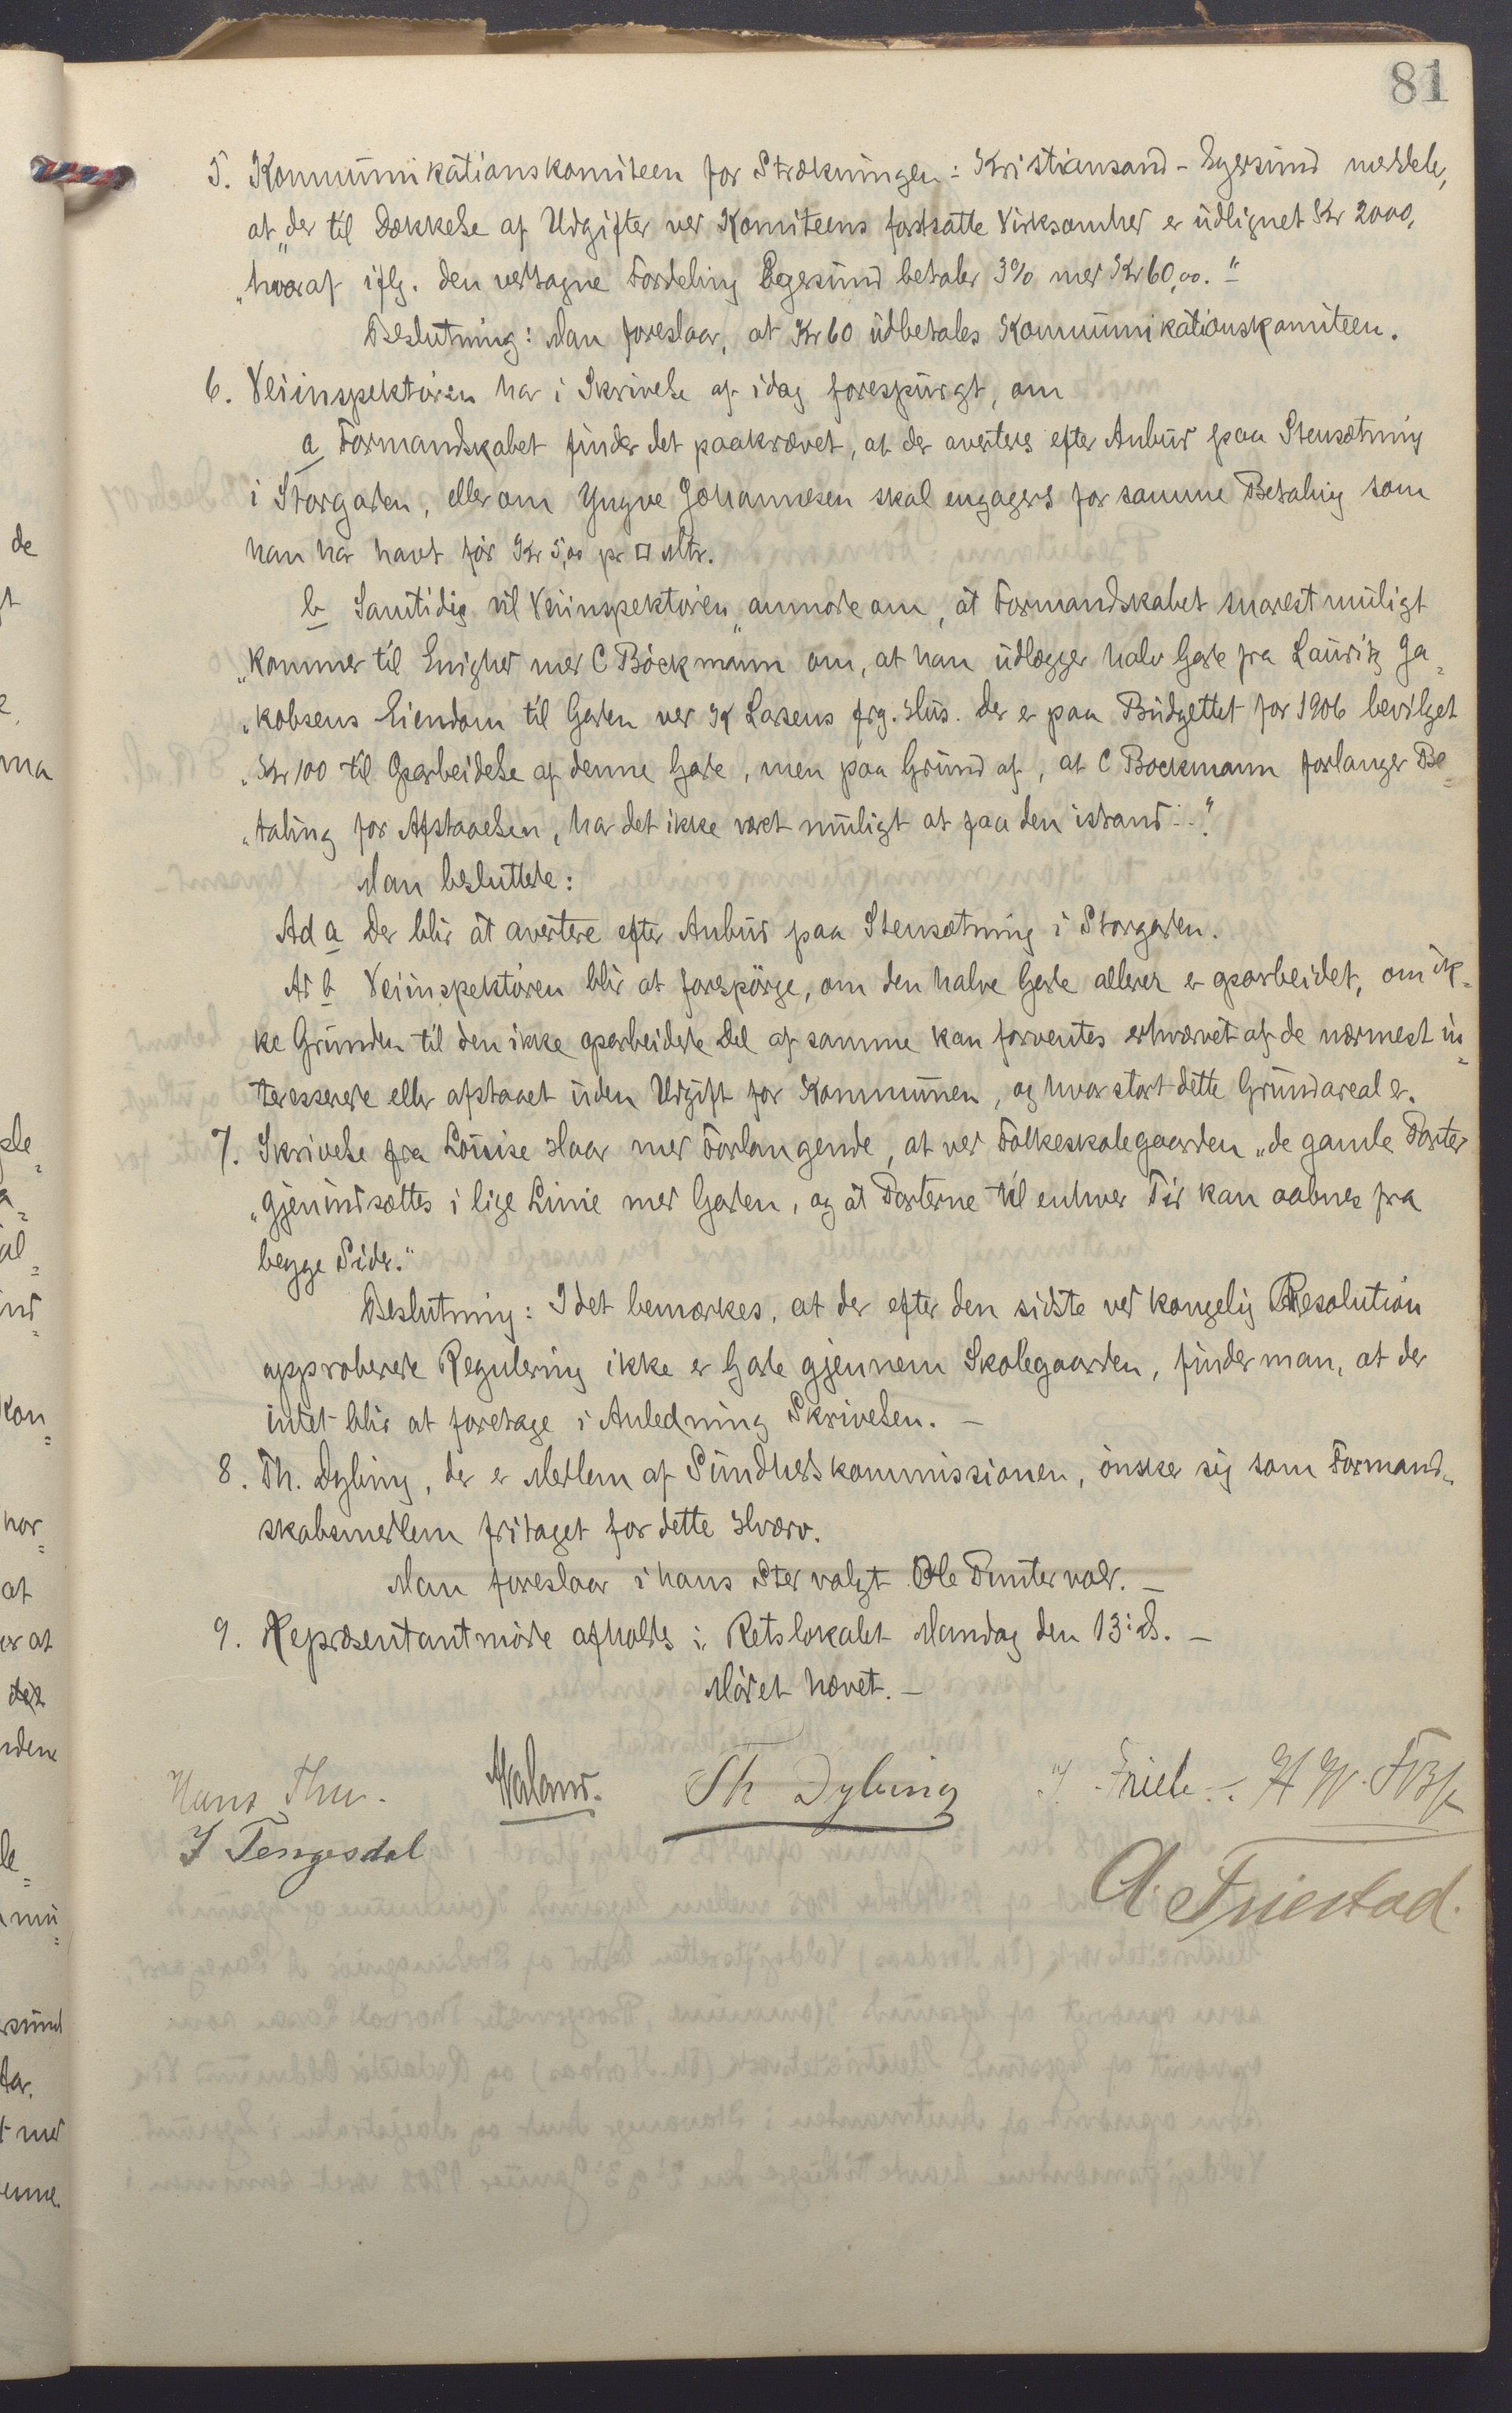 81
5. Kommunikationskomiteen for Strækningen: Kristiansand - Egersund meddeler,
at „der til Dækkelse af Udgifter ved Komiteens fortsatte Virksomhed er udlignet Kr 2000,
„hvoraf iflg. den vedtagne Fordeling Egersund betaler 3% med Kr 60,00."
Beslutning: Man foreslaar, at Kr 60 udbetales Kommunikationskomiteen.
6. Veiinspektøren har i Skrivelse af idag forespurgt, om
a Formandskabet finder det paakrævet, at der averteres efter Anbud paa Stensætning
i Storgaden, eller om Yngve Johannesen skal engageres for samme Betaling som
han har havt før Kr 5,00 pr □ Mtr.
b Samtidig vil Veiinspektøren „anmode om, at Formandskabet snarest muligt
„kommer til Enighed med C Böckmann om, at han udlægger halv Gade fra Lauritz Ja=
„kobsens Eiendom til Gaden ved K Larsens frg. Hus. Der er paa Budgettet for 1906 bevilget
„Kr 100 til Oparbeidelse af denne Gade, men paa Grund af, at C Bockmann forlanger Be=
„taling for Afstaaelsen, har det ikke været muligt at faa den istand..."
Man besluttede:
Ad a Der blir at avertere efter Anbud paa Stensætning i Storgaden.
Ad b Veiinspektøren blir at forespørge, om den halve Gade allerede er oparbeidet, om ik=
ke Grunden til den ikke oparbeidede Del af samme kan forventes erhvervet af de nærmest in=
teresserede eller afstaaet uden Udgift for Kommunen, og hvor stort dette Grundareal er.
7. Skrivelse fra Louise Haar med Forlangende, at ved Folkeskolegaarden „de gamle Porter
„gjenindsættes i lige Linie med Gaden, og at Porterne til enhver Tid kan aabnes fra
begge Sider."
Beslutning: Idet bemærkes, at der efter den sidste ved kongelig Resolution
approberede Regulering ikke er Gade gjennem Skolegaarden, finder man, at der
intet blir at foretage i Anledning Skrivelsen. —
8. Th. Dybing, der er Medlem af Sundhedskommissionen, ønsker sig som Formand=
skabsmedlem fritaget for dette Hverv.
Man foreslaar i hans Sted valgt Ole Puntervold. —
9. Repræsentantmøde afholdes i Retslokalet Mandag den 13:ds. —
Mødet hævet. —
Hans Thu. Haland. Th Dybing Friele
J Tengesdal
A. Friestad.